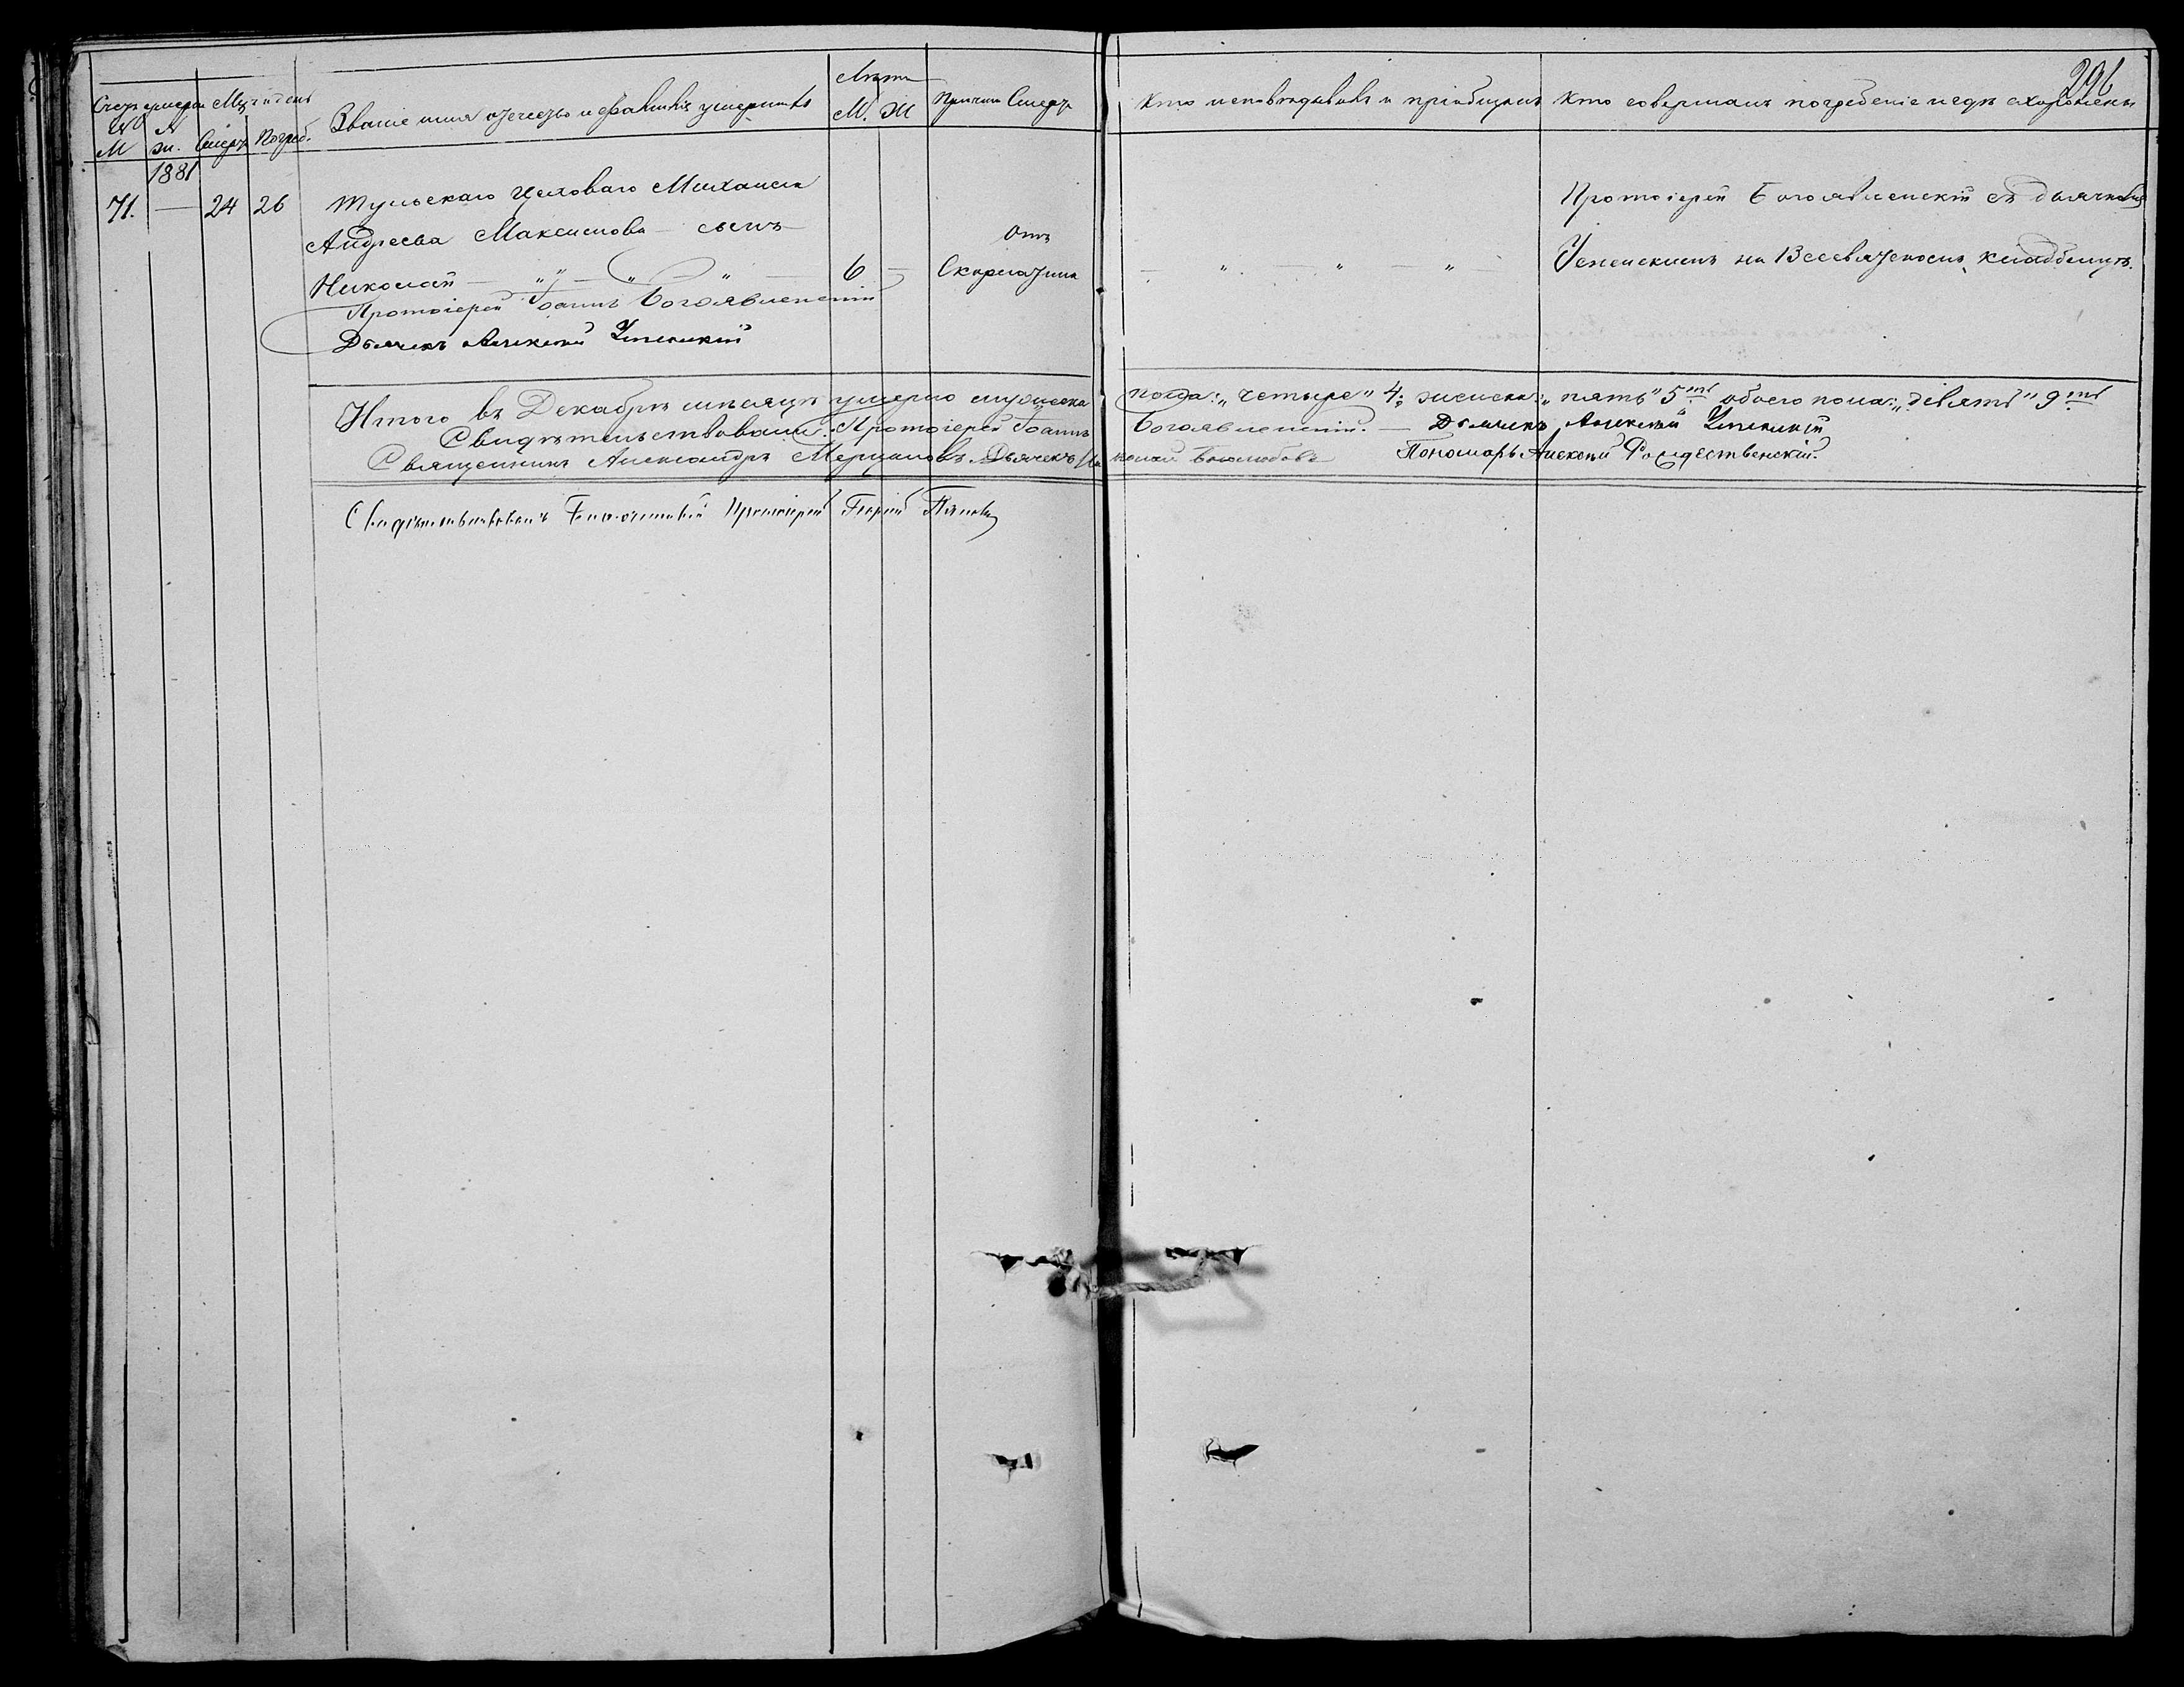 296
Счетъ умерш. Мц. и день Званіе имя отчество и фамилія умершихъ Лѣта М. Ж Причина Смерт. Кто исповѣдывалъ и пріобщалъ Кто совершалъ погребеніе и гдѣ схоронены
№ М № ж. Смерт. Погреб.
1881
71. — 24 26 Тульскаго Цеховаго Михаила Протоіерей Богоявленскій съ дьячкомъ
Андреева Максимова — сынъ Отъ
Николай — „ — „ — „ — 6 — Скарлатина — „ — „ — „ Успенскимъ на Всесвятскомъ кладбищѣ.
Протоіерей Іоаннъ Богоявленскій
Дьячекъ Алексѣй Успенскій
Итого въ Декабрѣ мѣсяцѣ умерло мужеска пола: „четыре" 4; женска: „пять" 5ть обоего пола: „девять" 9ть
Свидѣтельствовали: Протоіерей Іоаннъ Богоявленскій. — Дьячекъ Алексѣй Успенскій
Священникъ Александръ Мерцаловъ. Дьячекъ Боголюбовъ Пономарь Алексѣй Рождественскій.
Свидѣтельствовалъ Благочинный Протоіерей Георгій Пановъ